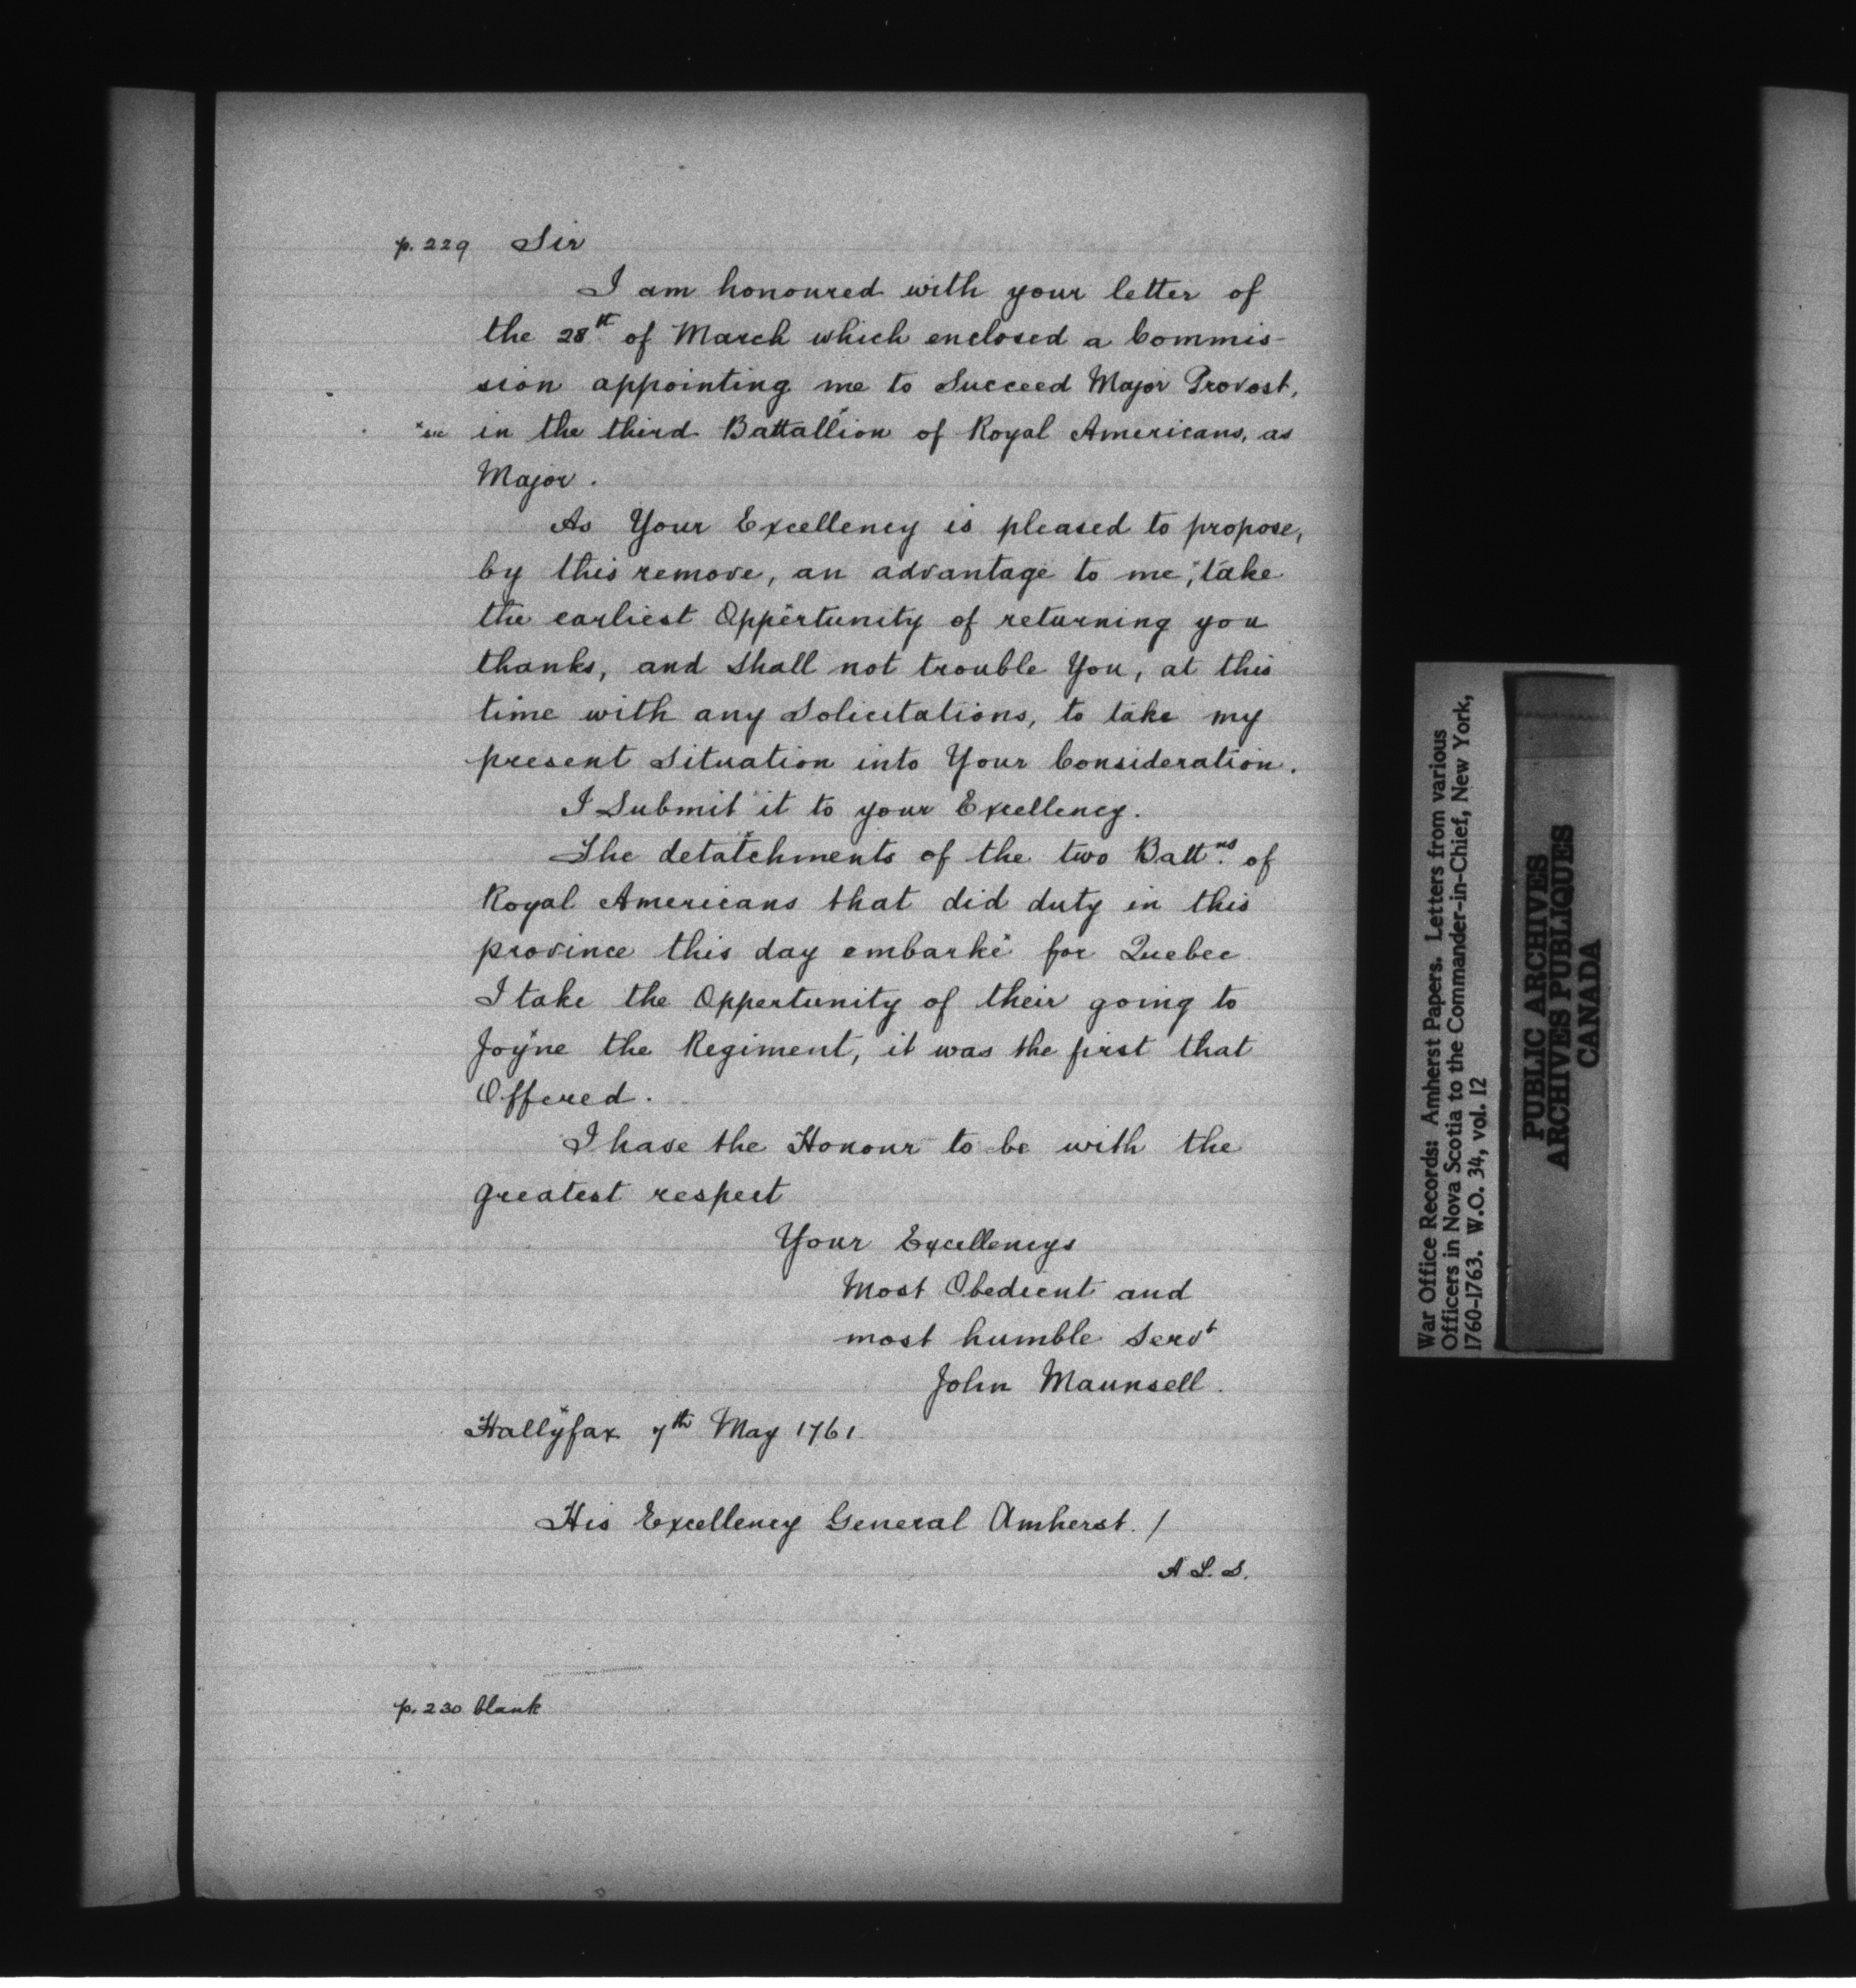 p. 229 Sir
I am honoured with your letter of
the 28th of March which enclosed a Commis-
sion appointing me to Succeed Major Provost,
*sic in the third Battallion of Royal Americans, as
Major.
As Your Excellency is pleased to propose,
by this remove, an advantage to me, take
the earliest Oppertunity of returning you
thanks, and shall not trouble You, at this
time with any Solicitations, to take my
present Situation into Your Consideration.
I Submit it to your Excellency.
The detatchments of the two Battns. of
Royal Americans that did duty in this
province this day embarke for Quebec
I take the Oppertunity of their going to
Joyne the Regiment, it was the first that
Offered.
I have the Honour to be with the
greatest respect
Your Excellencys
Most Obedient and
most humble Servt
John Maunsell.
Hallyfax 7th May 1761.
His Excellency General Amherst. /
A L. S.
p. 230 blank
War Office Records: Amherst Papers. Letters from various
Officers in Nova Scotia to the Commander-in-Chief, New York,
1760-1763. W.O. 34, vol. 12
PUBLIC ARCHIVES
ARCHIVES PUBLIQUES
CANADA